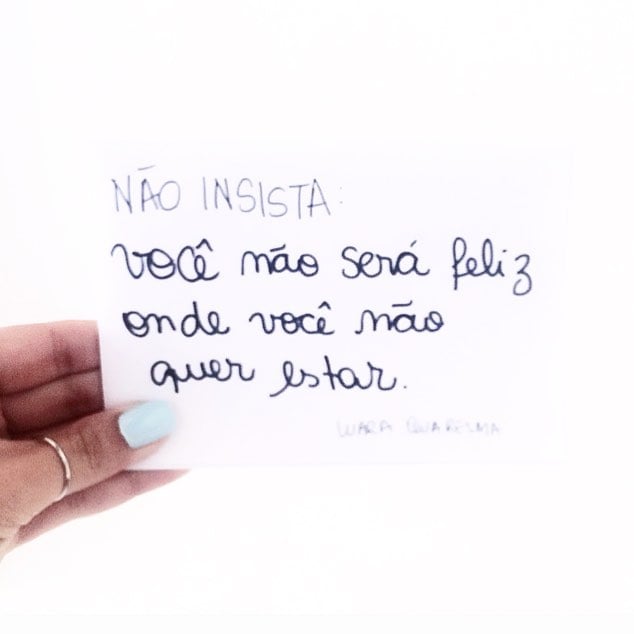 NÃO INSISTA:
você não será feliz
onde você não
quer estar.
LUARA QUARESMA